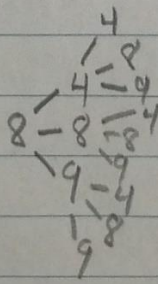 4
8
4 9
4
8 8 8
9
9 4
8
9